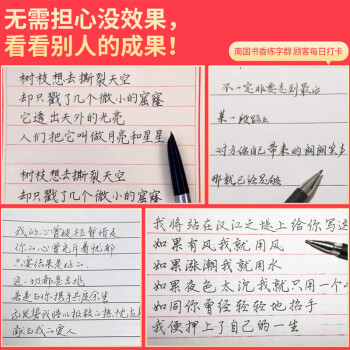 无需担心没效果,
看看别人的成果!
南国书香练字群 顾客每日打卡
树枝想去撕裂天空
却只戳了几个微小的窟窿
它透出天外的光亮
人们把它叫做月亮和星星
树枝想去撕裂天空
却只戳了几个微小的窟窿
不一定非要走到最后
某一段路上
对方给自己带来的朗朗笑声
那就已经足够
我的心曾被短暂情走
你的心曾充斥着忧郁
只要结果是好的
这一切都是
我将站在汉江之堤上给你写这
如果有风我就用风
如果涨潮我就用水
如果夜色太沉我就只用一个
如同你曾经轻轻地招手
我便押上了自己的一生